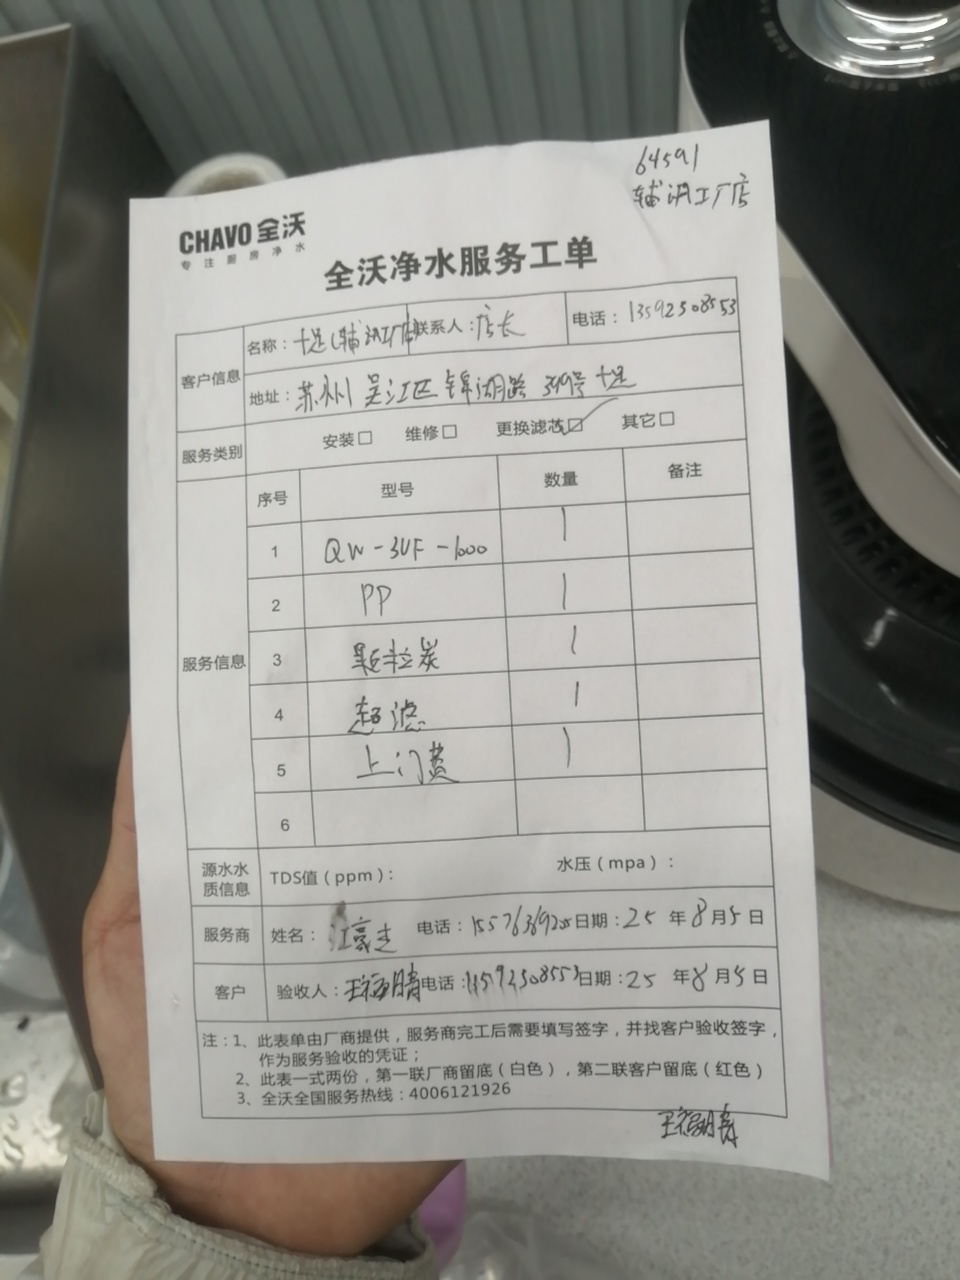 64591
辅讯工厂店
CHAVO 全沃
专注厨房净水
全沃净水服务工单
客户信息
名称：十足(辅讯工厂店 联系人：店长 电话：13592508553
地址：苏州 吴江区 锦湖路 399号 十足
服务类别 安装□ 维修□ 更换滤芯☑ 其它□
服务信息
序号 型号 数量 备注
1 QW-3UF-1000 1
2 PP 1
3 颗粒炭 1
4 超滤 1
5 上门费 1
6
源水水质信息 TDS值（ppm）： 水压（mpa）：
服务商 姓名： 电话： 日期：25 年 8 月 5 日
客户 验收人： 电话：13592508553 日期：25 年 8 月 5 日
注：1、此表单由厂商提供，服务商完工后需要填写签字，并找客户验收签字，
作为服务验收的凭证；
2、此表一式两份，第一联厂商留底（白色），第二联客户留底（红色）
3、全沃全国服务热线：4006121926